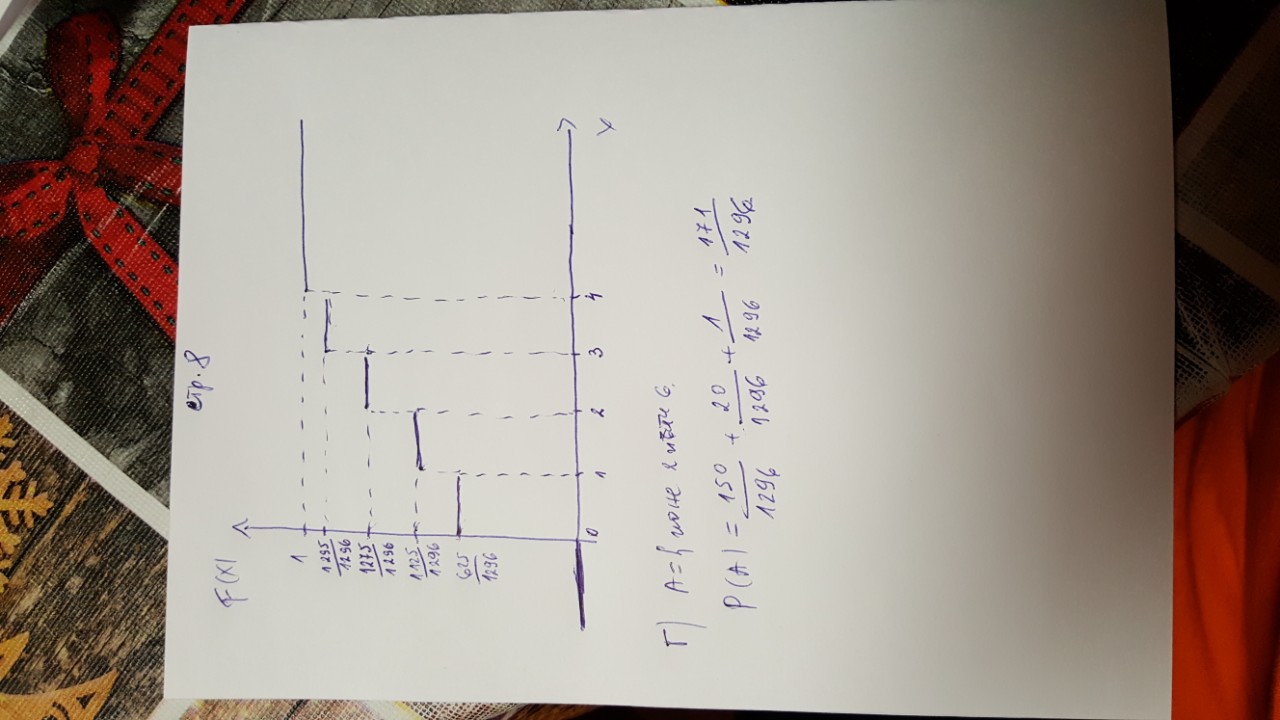 стр. 8
F(x)
1
1295/1296
1275/1296
1125/1296
625/1296
0 1 2 3 4
x
Г) A = { поне 2 пъти 6
P(A) = 150/1296 + 20/1296 + 1/1296 = 171/1296